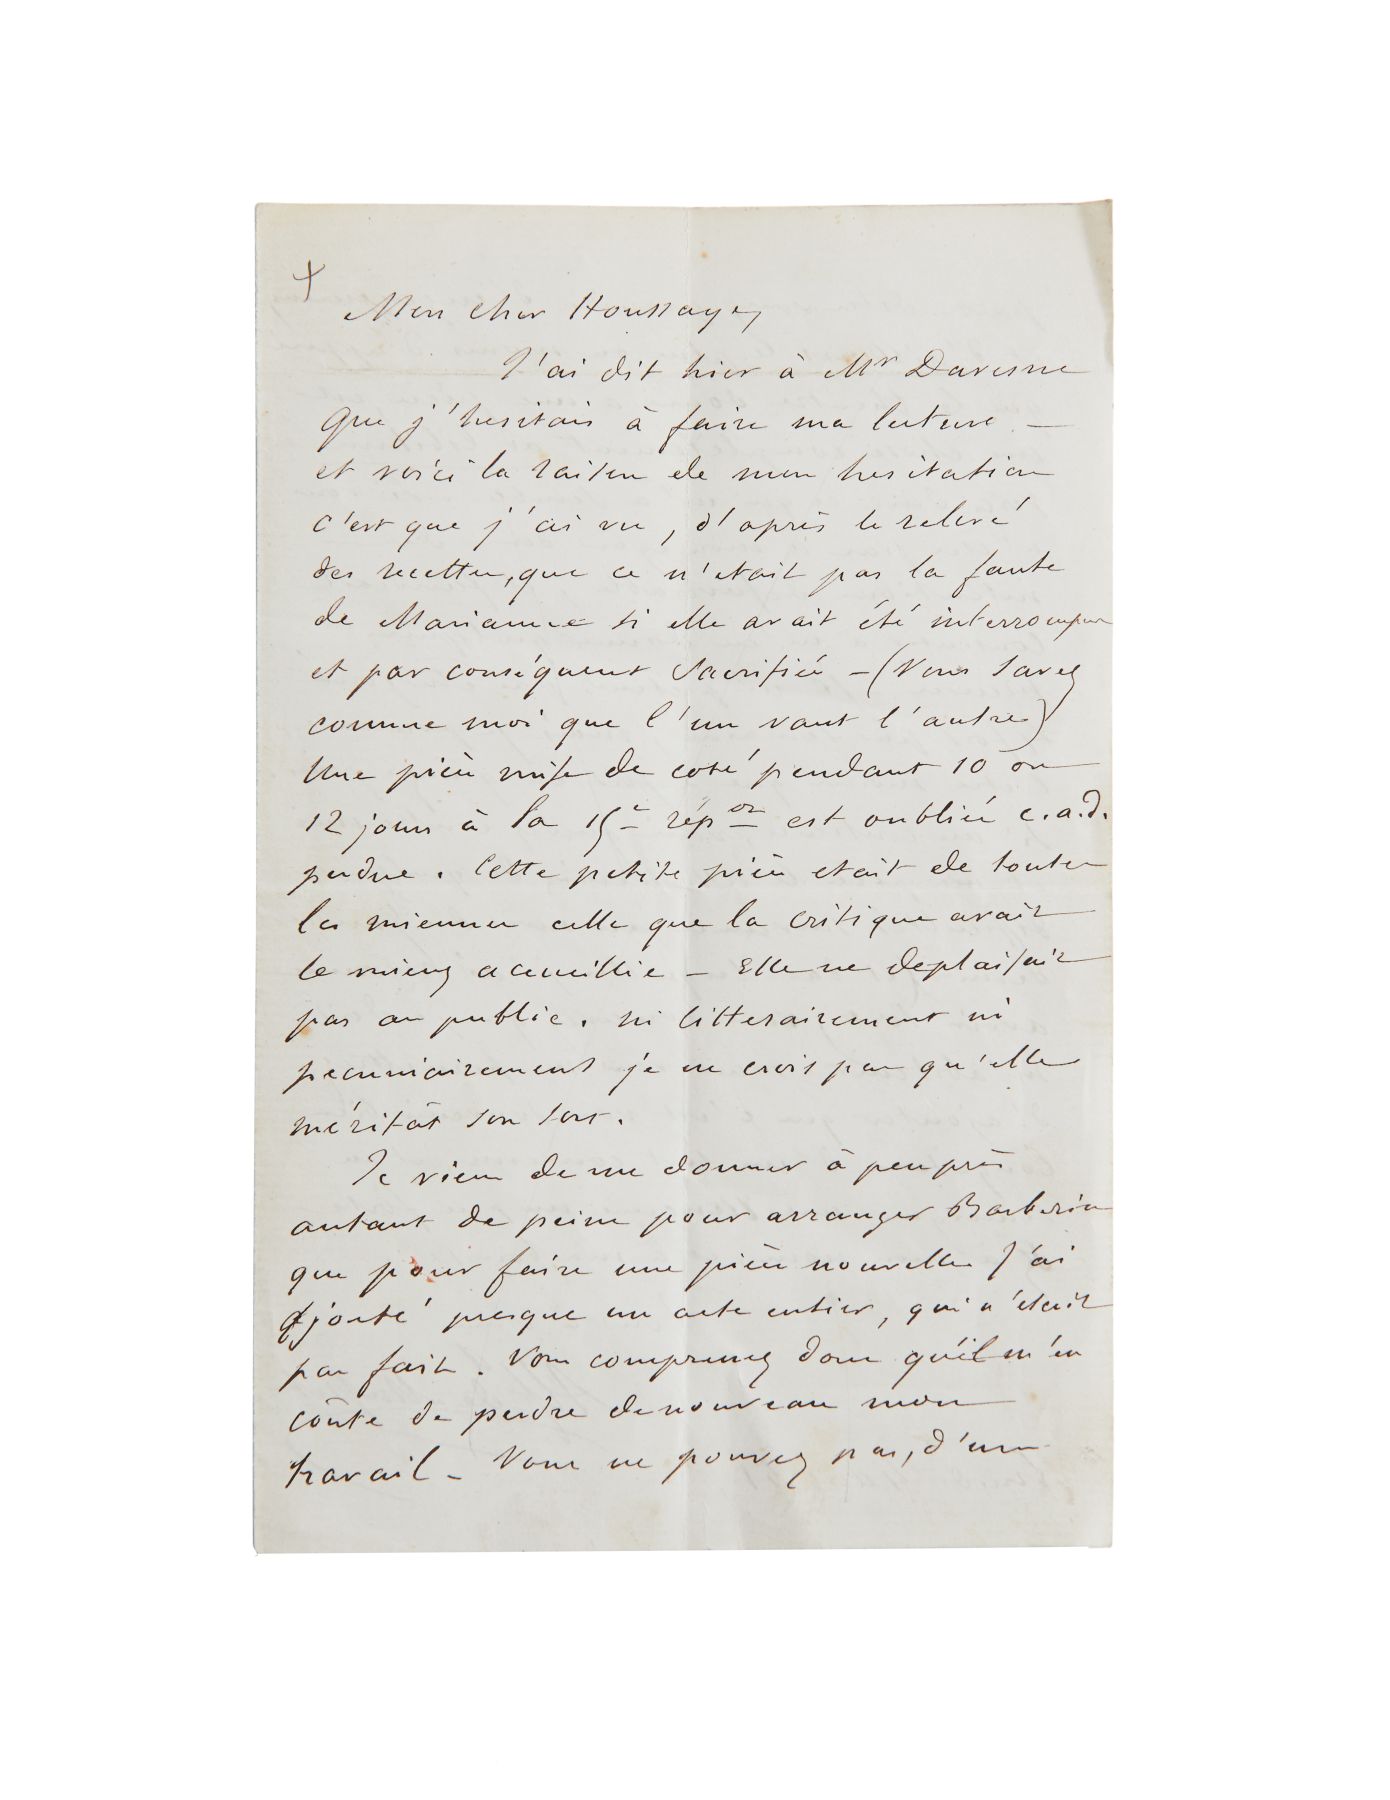 +
Mon cher Houssaye,
J'ai dit hier à Mr Davesne
que j'hesitais à faire ma lecture —
et voici la raison de mon hesitation
c'est que j'ai vu, d'après le relevé
des recettes, que ce n'etait pas la faute
de Marianne si elle avait été interrompue
et par conséquent sacrifiée — (Vous savez
comme moi que l'un vaut l'autre)
Une pièce mise de coté pendant 10 ou
12 jours à la 15e répon est oubliée c.a.d.
perdue. Cette petite pièce etait de toutes
les miennes celle que la critique avait
le mieux accueillie — Elle ne deplaisait
pas au public. ni litterairement ni
pecuniairement je ne crois pas qu'elle
méritât son sort.
Je viens de me donner à peu près
autant de peine pour arranger Barberine
que pour faire une pièce nouvelle J'ai
ajouté presque un acte entier, qui n'était
pas fait. Vous comprenez donc qu'il m'en
coûte de perdre de nouveau mon
travail — Vous ne pouvez pas, d'un